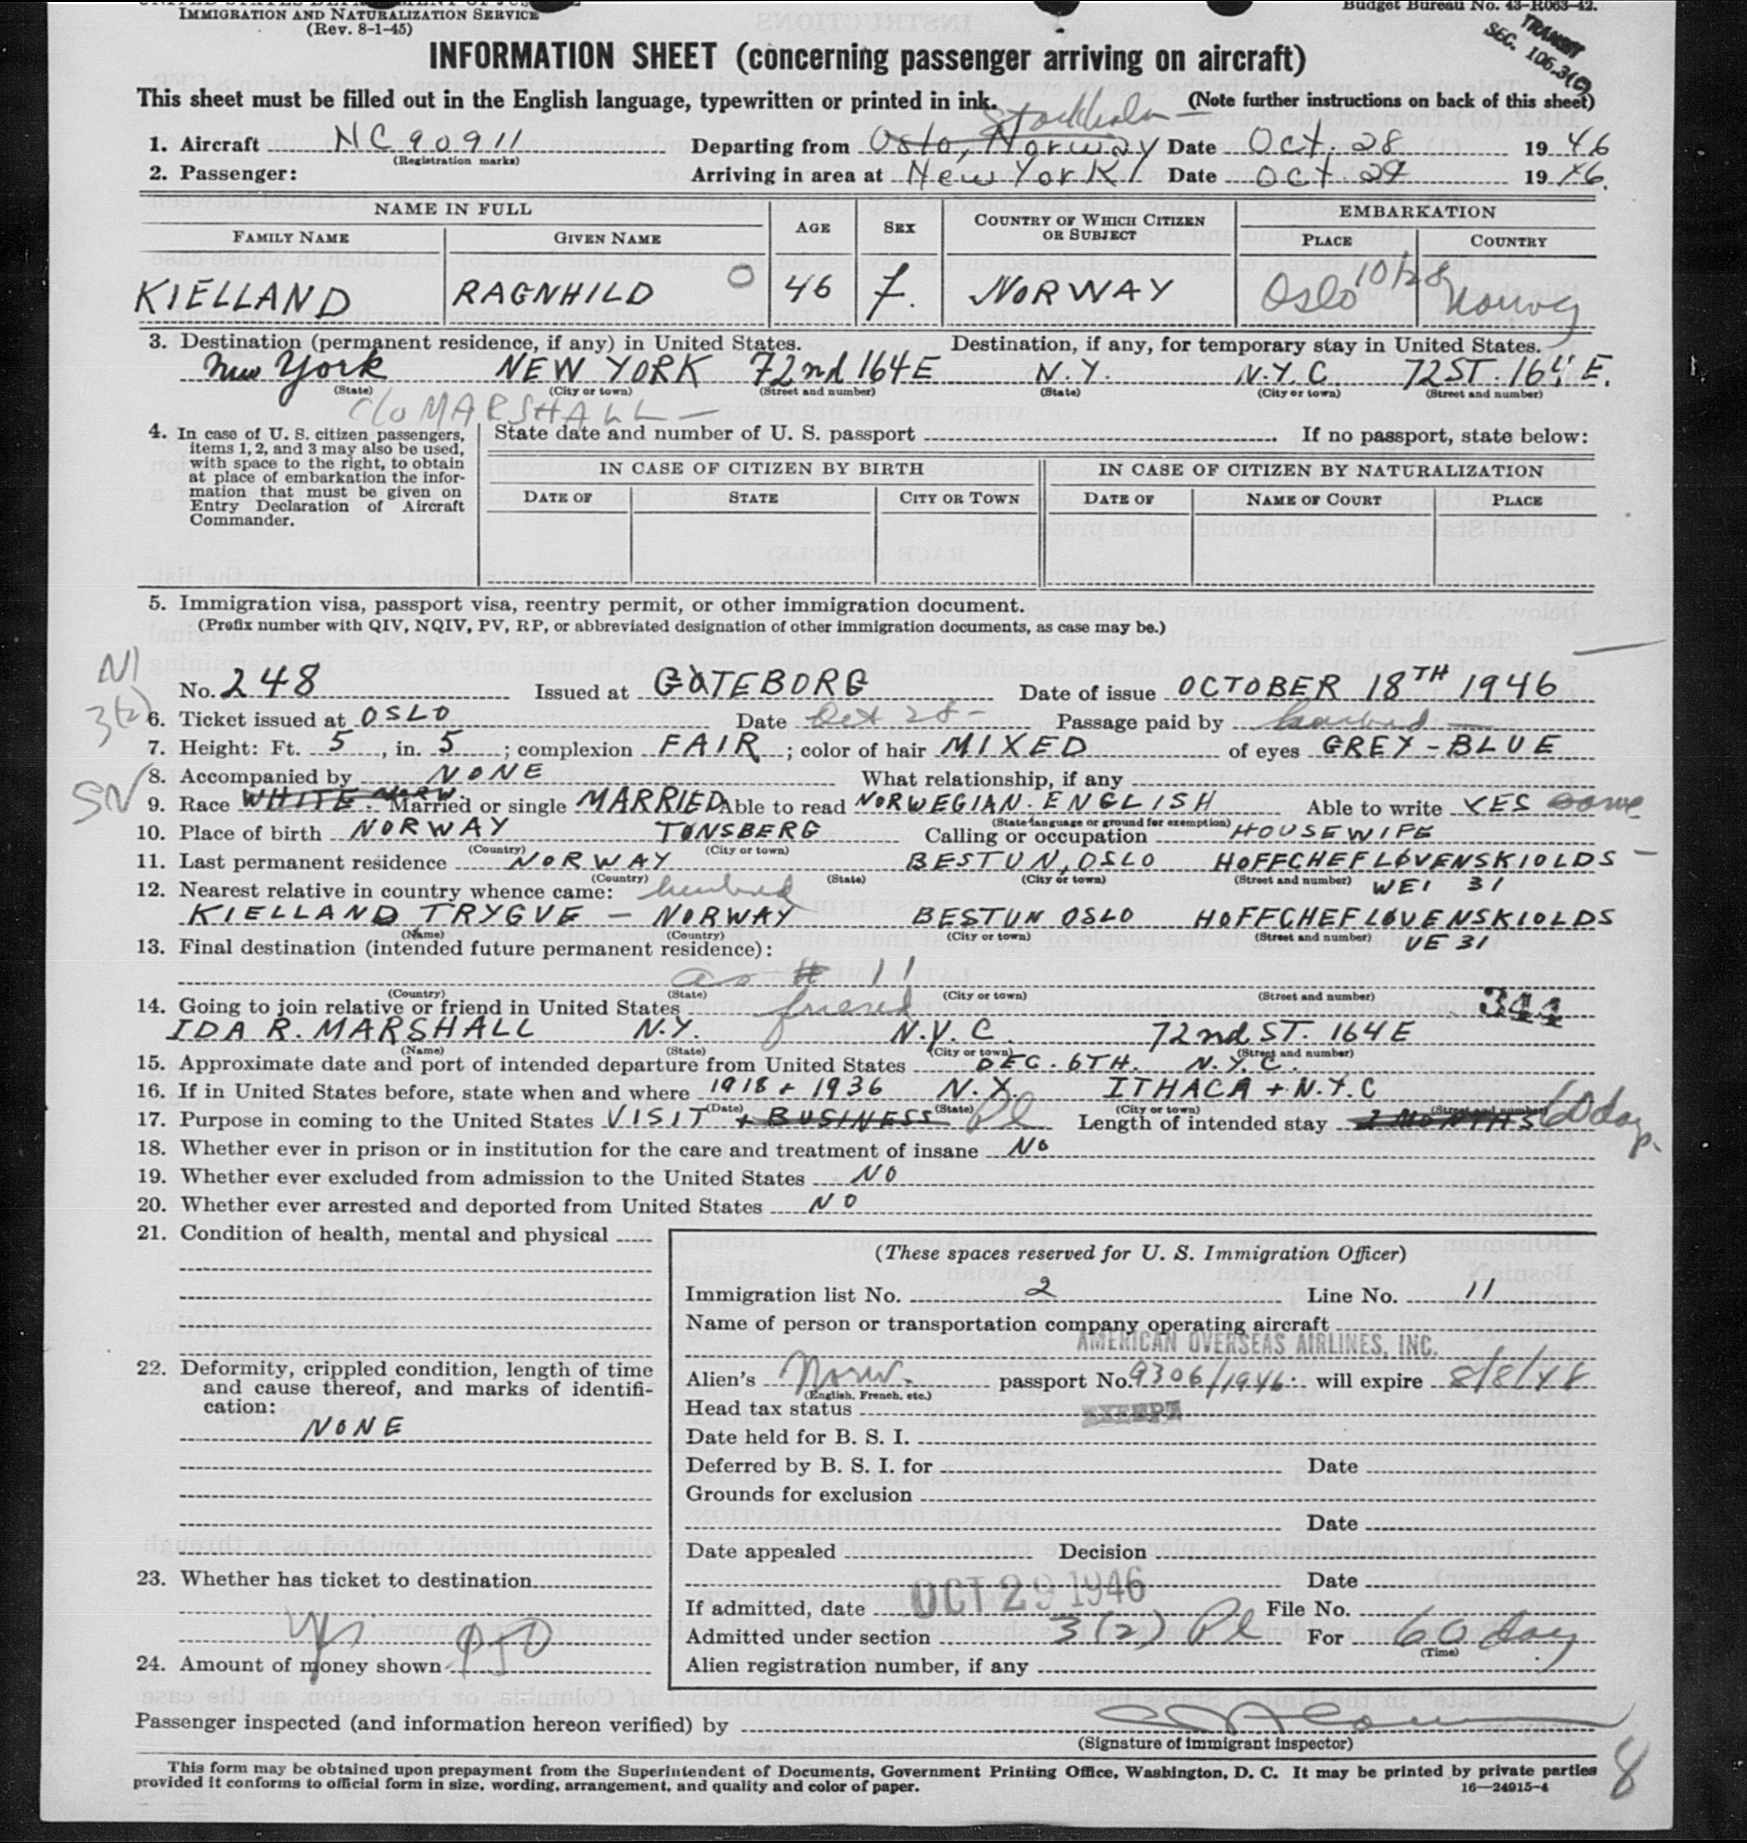 IMMIGRATION AND NATURALIZATION SERVICE
(Rev. 8-1-45)
Budget Bureau No. 43-R063-42.
TRANSIT
SEC. 106.3(C)
INFORMATION SHEET (concerning passenger arriving on aircraft)
This sheet must be filled out in the English language, typewritten or printed in ink. (Note further instructions on back of this sheet)
Stockholm
1. Aircraft NC90911 Departing from Oslo, Norway Date Oct. 28 1946
(Registration marks)
2. Passenger: Arriving in area at New York Date Oct. 29 1946.
NAME IN FULL AGE SEX COUNTRY OF WHICH CITIZEN OR SUBJECT EMBARKATION
FAMILY NAME GIVEN NAME PLACE COUNTRY
KIELLAND RAGNHILD O 46 F. NORWAY Oslo 10/28 Norway
3. Destination (permanent residence, if any) in United States. Destination, if any, for temporary stay in United States.
New York NEW YORK 72nd 164E N.Y. N.Y.C. 72ST. 164 E.
(State) (City or town) (Street and number) (State) (City or town) (Street and number)
c/o MARSHALL —
4. In case of U. S. citizen passengers, items 1, 2, and 3 may also be used, with space to the right, to obtain at place of embarkation the information that must be given on Entry Declaration of Aircraft Commander.
State date and number of U. S. passport If no passport, state below:
IN CASE OF CITIZEN BY BIRTH IN CASE OF CITIZEN BY NATURALIZATION
DATE OF STATE CITY OR TOWN DATE OF NAME OF COURT PLACE
5. Immigration visa, passport visa, reentry permit, or other immigration document.
(Prefix number with QIV, NQIV, PV, RP, or abbreviated designation of other immigration documents, as case may be.)
NI
No. 248 Issued at GÖTEBORG Date of issue OCTOBER 18TH 1946
3(2)
6. Ticket issued at OSLO Date Oct 28- Passage paid by husband
7. Height: Ft. 5, in. 5; complexion FAIR; color of hair MIXED of eyes GREY-BLUE
SN
8. Accompanied by NONE What relationship, if any
9. Race WHITE NORW. Married or single MARRIED Able to read NORWEGIAN. ENGLISH Able to write YES same
(State language or ground for exemption)
10. Place of birth NORWAY TØNSBERG Calling or occupation HOUSEWIFE
(Country) (City or town)
11. Last permanent residence NORWAY BESTUN, OSLO HOFFCHEF LØVENSKIOLDS —
(Country) (State) (City or town) (Street and number) WEI 31
12. Nearest relative in country whence came: husband
KIELLAND TRYGVE — NORWAY BESTUN OSLO HOFFCHEF LØVENSKIOLDS
(Name) (Country) (City or town) (Street and number) VE 31
13. Final destination (intended future permanent residence):
as # 11
(Country) (State) (City or town) (Street and number)
14. Going to join relative or friend in United States friend 344
IDA R. MARSHALL N.Y. N.Y.C. 72nd ST. 164E
(Name) (State) (City or town) (Street and number)
15. Approximate date and port of intended departure from United States DEC. 6TH. N.Y.C.
16. If in United States before, state when and where 1918 + 1936 N.Y. ITHACA + N.Y.C
(Date) (State) (City or town) (Street and number)
17. Purpose in coming to the United States VISIT + BUSINESS Pl Length of intended stay 2 MONTHS 60 days
18. Whether ever in prison or in institution for the care and treatment of insane NO
19. Whether ever excluded from admission to the United States NO
20. Whether ever arrested and deported from United States NO
21. Condition of health, mental and physical
22. Deformity, crippled condition, length of time and cause thereof, and marks of identification:
NONE
23. Whether has ticket to destination
yes $50
24. Amount of money shown
(These spaces reserved for U. S. Immigration Officer)
Immigration list No. 2 Line No. 11
Name of person or transportation company operating aircraft
AMERICAN OVERSEAS AIRLINES, INC.
Alien's Norw. passport No. 9306/1946. will expire 8/8/48
(English, French, etc.)
Head tax status EXEMPT
Date held for B. S. I.
Deferred by B. S. I. for Date
Grounds for exclusion
Date
Date appealed Decision
Date
If admitted, date OCT 29 1946 File No.
Admitted under section 3(2) Pl For 60 day
(Time)
Alien registration number, if any
Passenger inspected (and information hereon verified) by
(Signature of immigrant inspector)
This form may be obtained upon prepayment from the Superintendent of Documents, Government Printing Office, Washington, D. C. It may be printed by private parties
provided it conforms to official form in size, wording, arrangement, and quality and color of paper. 16—24915-4
8